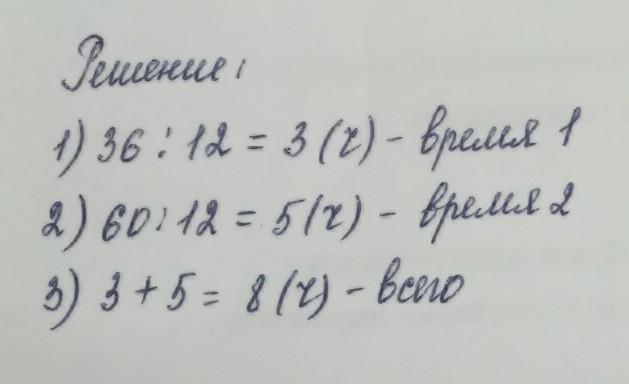 Решение:
1) 36 : 12 = 3 (ч) - время 1
2) 60 : 12 = 5 (ч) - время 2
3) 3 + 5 = 8 (ч) - всего